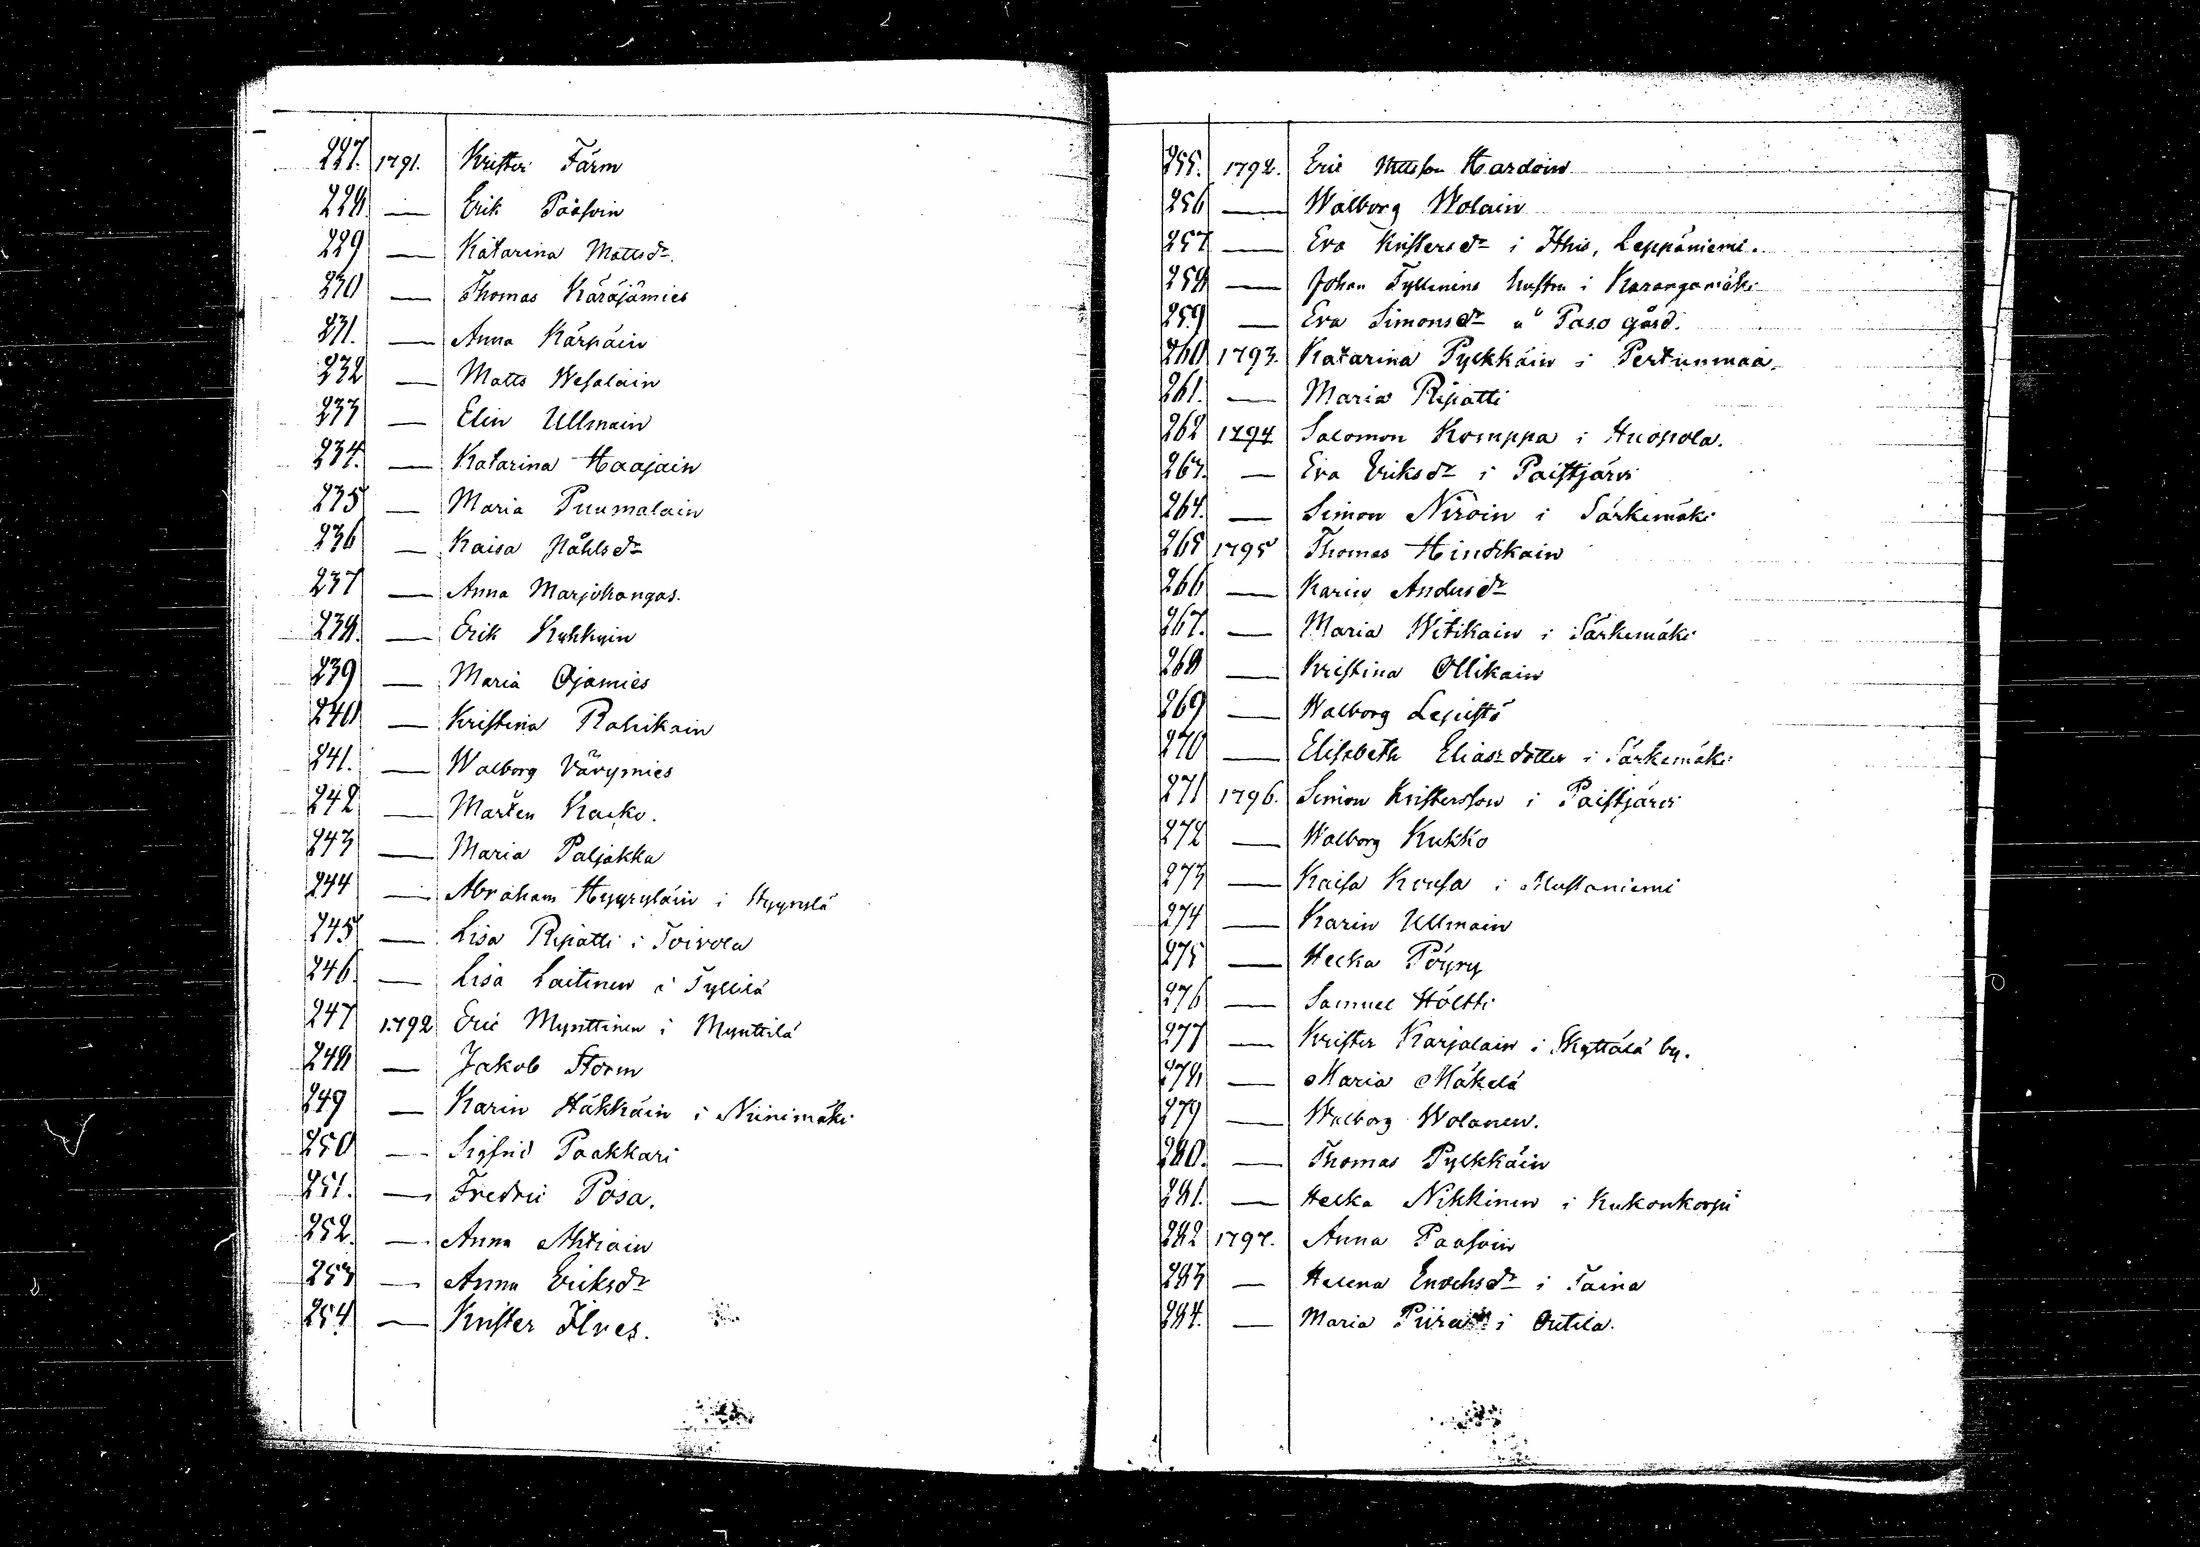 227. 1791. Krister Färm
228. — Erik Paasoin
229 — Katarina Mattsdr.
230 — Thomas Käräjämies
231. — Anna Kärpäin
232 — Matts Wesalain
233 — Elin Ullmain
234. — Katarina Haajain
235 — Maria Puumalain
236 — Kaisa Påhlsdr
237 — Anna Marjokangas.
238. — Erik Kyhkyin
239 — Maria Ojamies
240 — Kristina Rahikain
241. — Walborg Värymies
242 — Mårten Kaeko.
243 — Maria Paljakka
244 — Abraham Hyyryläin i Hyyrylä
245 — Lisa Ripatti i Toivola
246. — Lisa Laitinen i Tyllilä
247 1792 Eric Mynttinen i Mynttilä
248 — Jakob Storm
249 — Karin Häkkäin i Niinimäki
250 — Sigfrid Paakkari
251. — Fredric Posa.
252. — Anna Ahtiain
253 — Anna Eriksdr
254. — Krister Ilves.
255. 1792. Eric Mattsson Kardoin
256 — Walborg Wolain
257 — Eva Kristersdr i Leppäniemi.
258 — Johan Tyllinens hustru i Karangamäki
259 — Eva Simonsdr å Paso gård.
260 1793. Katarina Pylkkäin i Pertunmaa.
261. — Maria Ripatti
262 1794 Salomon Komppa i Huopola.
263. — Eva Eriksdr i Paistjärvi
264. — Simon Niroin i Särkimäki
265 1795 Thomas Hindikain
266 — Karin Andersdr
267. — Maria Witikain i Särkimäki
268 — Kristina Ollikain
269 — Walborg Lepistö
270 — Elisabeth Eliasdotter i Särkemäki
271 1796. Simon Kristersson i Paistjärvi
272 — Walborg Kukko
273 — Kaisa Kousa i Mustaniemi
274 — Karin Ullmain
275 — Helka Pöyry
276 — Samuel Höltti
277 — Krister Karjalain i Skyttälä by.
278. — Maria Mäkelä
279 — Walborg Wolanen.
280. — Thomas Pylkkäin
281. — Helka Nikkinen i Kukonkorpi
282 1797. Anna Paasoin
283 — Helena Enochsdr i Taina
284. — Maria i Outila.